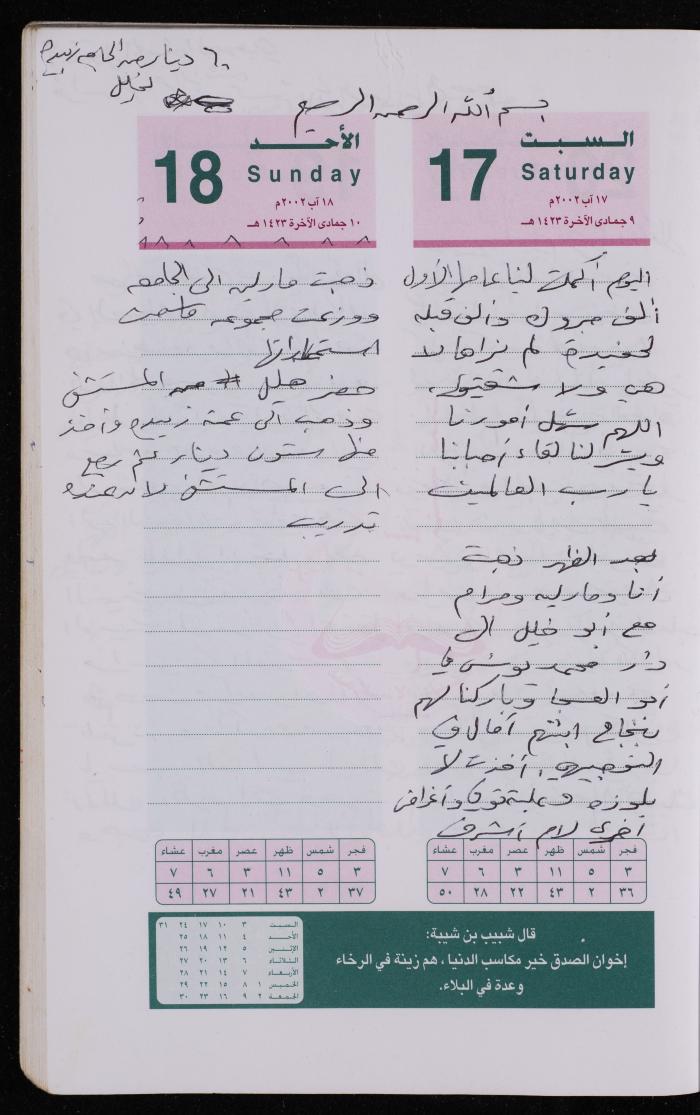 ٦٠ دينار من الحاجه زبيده
لخليل
بسم الله الرحمن الرحيم
السبت
17
Saturday
١٧ آب ٢٠٠٢م
٩ جمادى الآخرة ١٤٢٣هـ
اليوم أكملت لينا عامها الأول
ألف مبروك وألف قبله
لحفيدة لم نراها لا
هي ولا شقيقها،
اللهم سهل أمورنا
ويسر لنا لقاء أحبابنا
يا رب العالمين
بعد الظهر ذهبت
أنا وماريه ومرام
مع أبو خليل الى
دار محمد
أبو وباركنا لهم
بنجاح ابنتهم في
التوجيهي، أخذت لا
بلوزه وعلبة وأغراض
أخرى لام أشرف
الأحد
18
Sunday
١٨ آب ٢٠٠٢م
١٠ جمادى الآخرة ١٤٢٣هـ
٨ ٨ ٨ ٨ ٨ ٨ ٨٨
ذهبت ماريه الى الجامعه
ووزعت مجموعه
استماراتها
حضر خليل من المستشفى
وذهب الى عمته زبيده وأخذ
منها ستون دينار ثم رجع
الى المستشفى لانه عنده
تدريب
فجر شمس ظهر عصر مغرب عشاء
٣ ٥ ١١ ٣ ٦ ٧
٣٦ ٢ ٤٣ ٢٢ ٢٨ ٥٠
فجر شمس ظهر عصر مغرب عشاء
٣ ٥ ١١ ٣ ٦ ٧
٣٧ ٢ ٤٣ ٢١ ٢٧ ٤٩
قال شبيب بن شيبة:
إخوان الصدق خير مكاسب الدنيا، هم زينة في الرخاء
وعدة في البلاء.
السبت ٣ ١٠ ١٧ ٢٤ ٣١
الأحد ٤ ١١ ١٨ ٢٥
الإثنين ٥ ١٢ ١٩ ٢٦
الثلاثاء ٦ ١٣ ٢٠ ٢٧
الأربعاء ٧ ١٤ ٢١ ٢٨
الخميس ١ ٨ ١٥ ٢٢ ٢٩
الجمعة ٢ ٩ ١٦ ٢٣ ٣٠